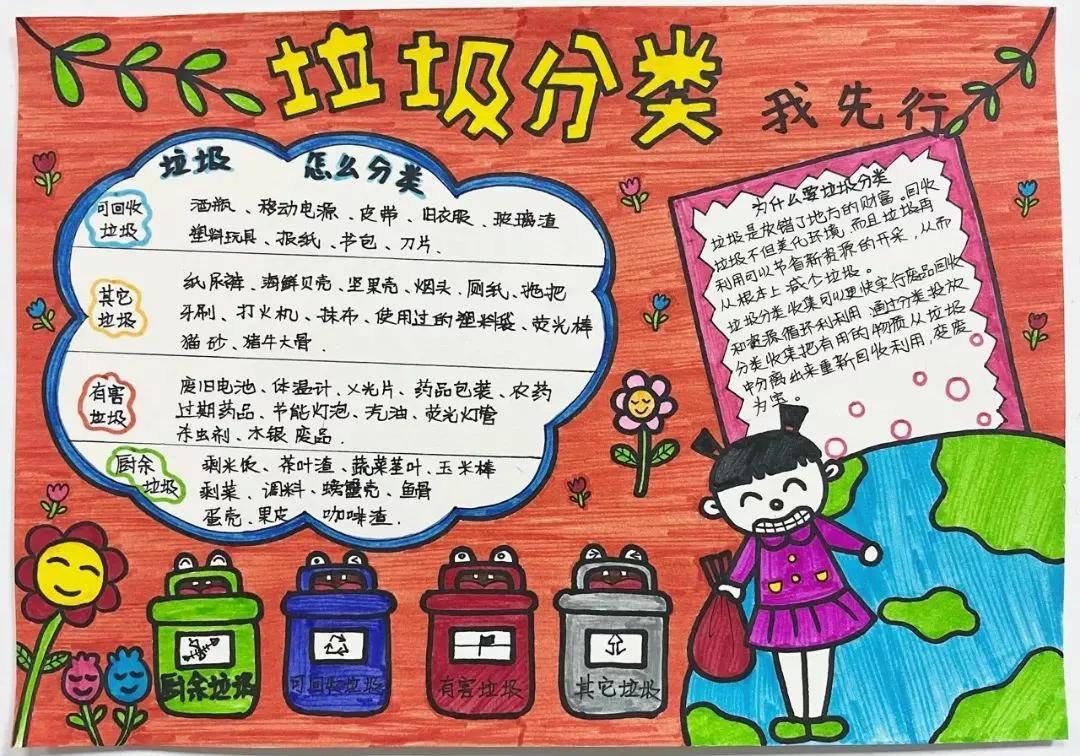 垃圾分类
我先行
垃圾 怎么分类
可回收
垃圾
酒瓶、移动电源、皮带、旧衣服、玻璃渣
塑料玩具、报纸、书包、刀片.
其它
垃圾
纸尿裤、海鲜贝壳、坚果壳、烟头、厕纸、拖把
牙刷、打火机、抹布、使用过的塑料袋、荧光棒
猫砂、猪牛大骨.
有害
垃圾
废旧电池、体温计、X光片、药品包装、农药
过期药品、节能灯泡、汽油、荧光灯管
杀虫剂、水银废品.
厨余
垃圾
剩米饭、茶叶渣、蔬菜茎叶、玉米棒
剩菜、调料、螃蟹壳、鱼骨
蛋壳、果皮、咖啡渣.
为什么要垃圾分类
垃圾是放错了地方的财富。回收
垃圾不但美化环境,而且垃圾再
利用可以节省新资源的开采,从而
从根本上减少垃圾。
垃圾分类收集可以更快实行废品回收
和资源循环利利用,通过分类投放
分类收集把有用的物质从垃圾
中分离出来重新回收利用,变废
为宝。
厨余垃圾
可回收垃圾
有害垃圾
其它垃圾